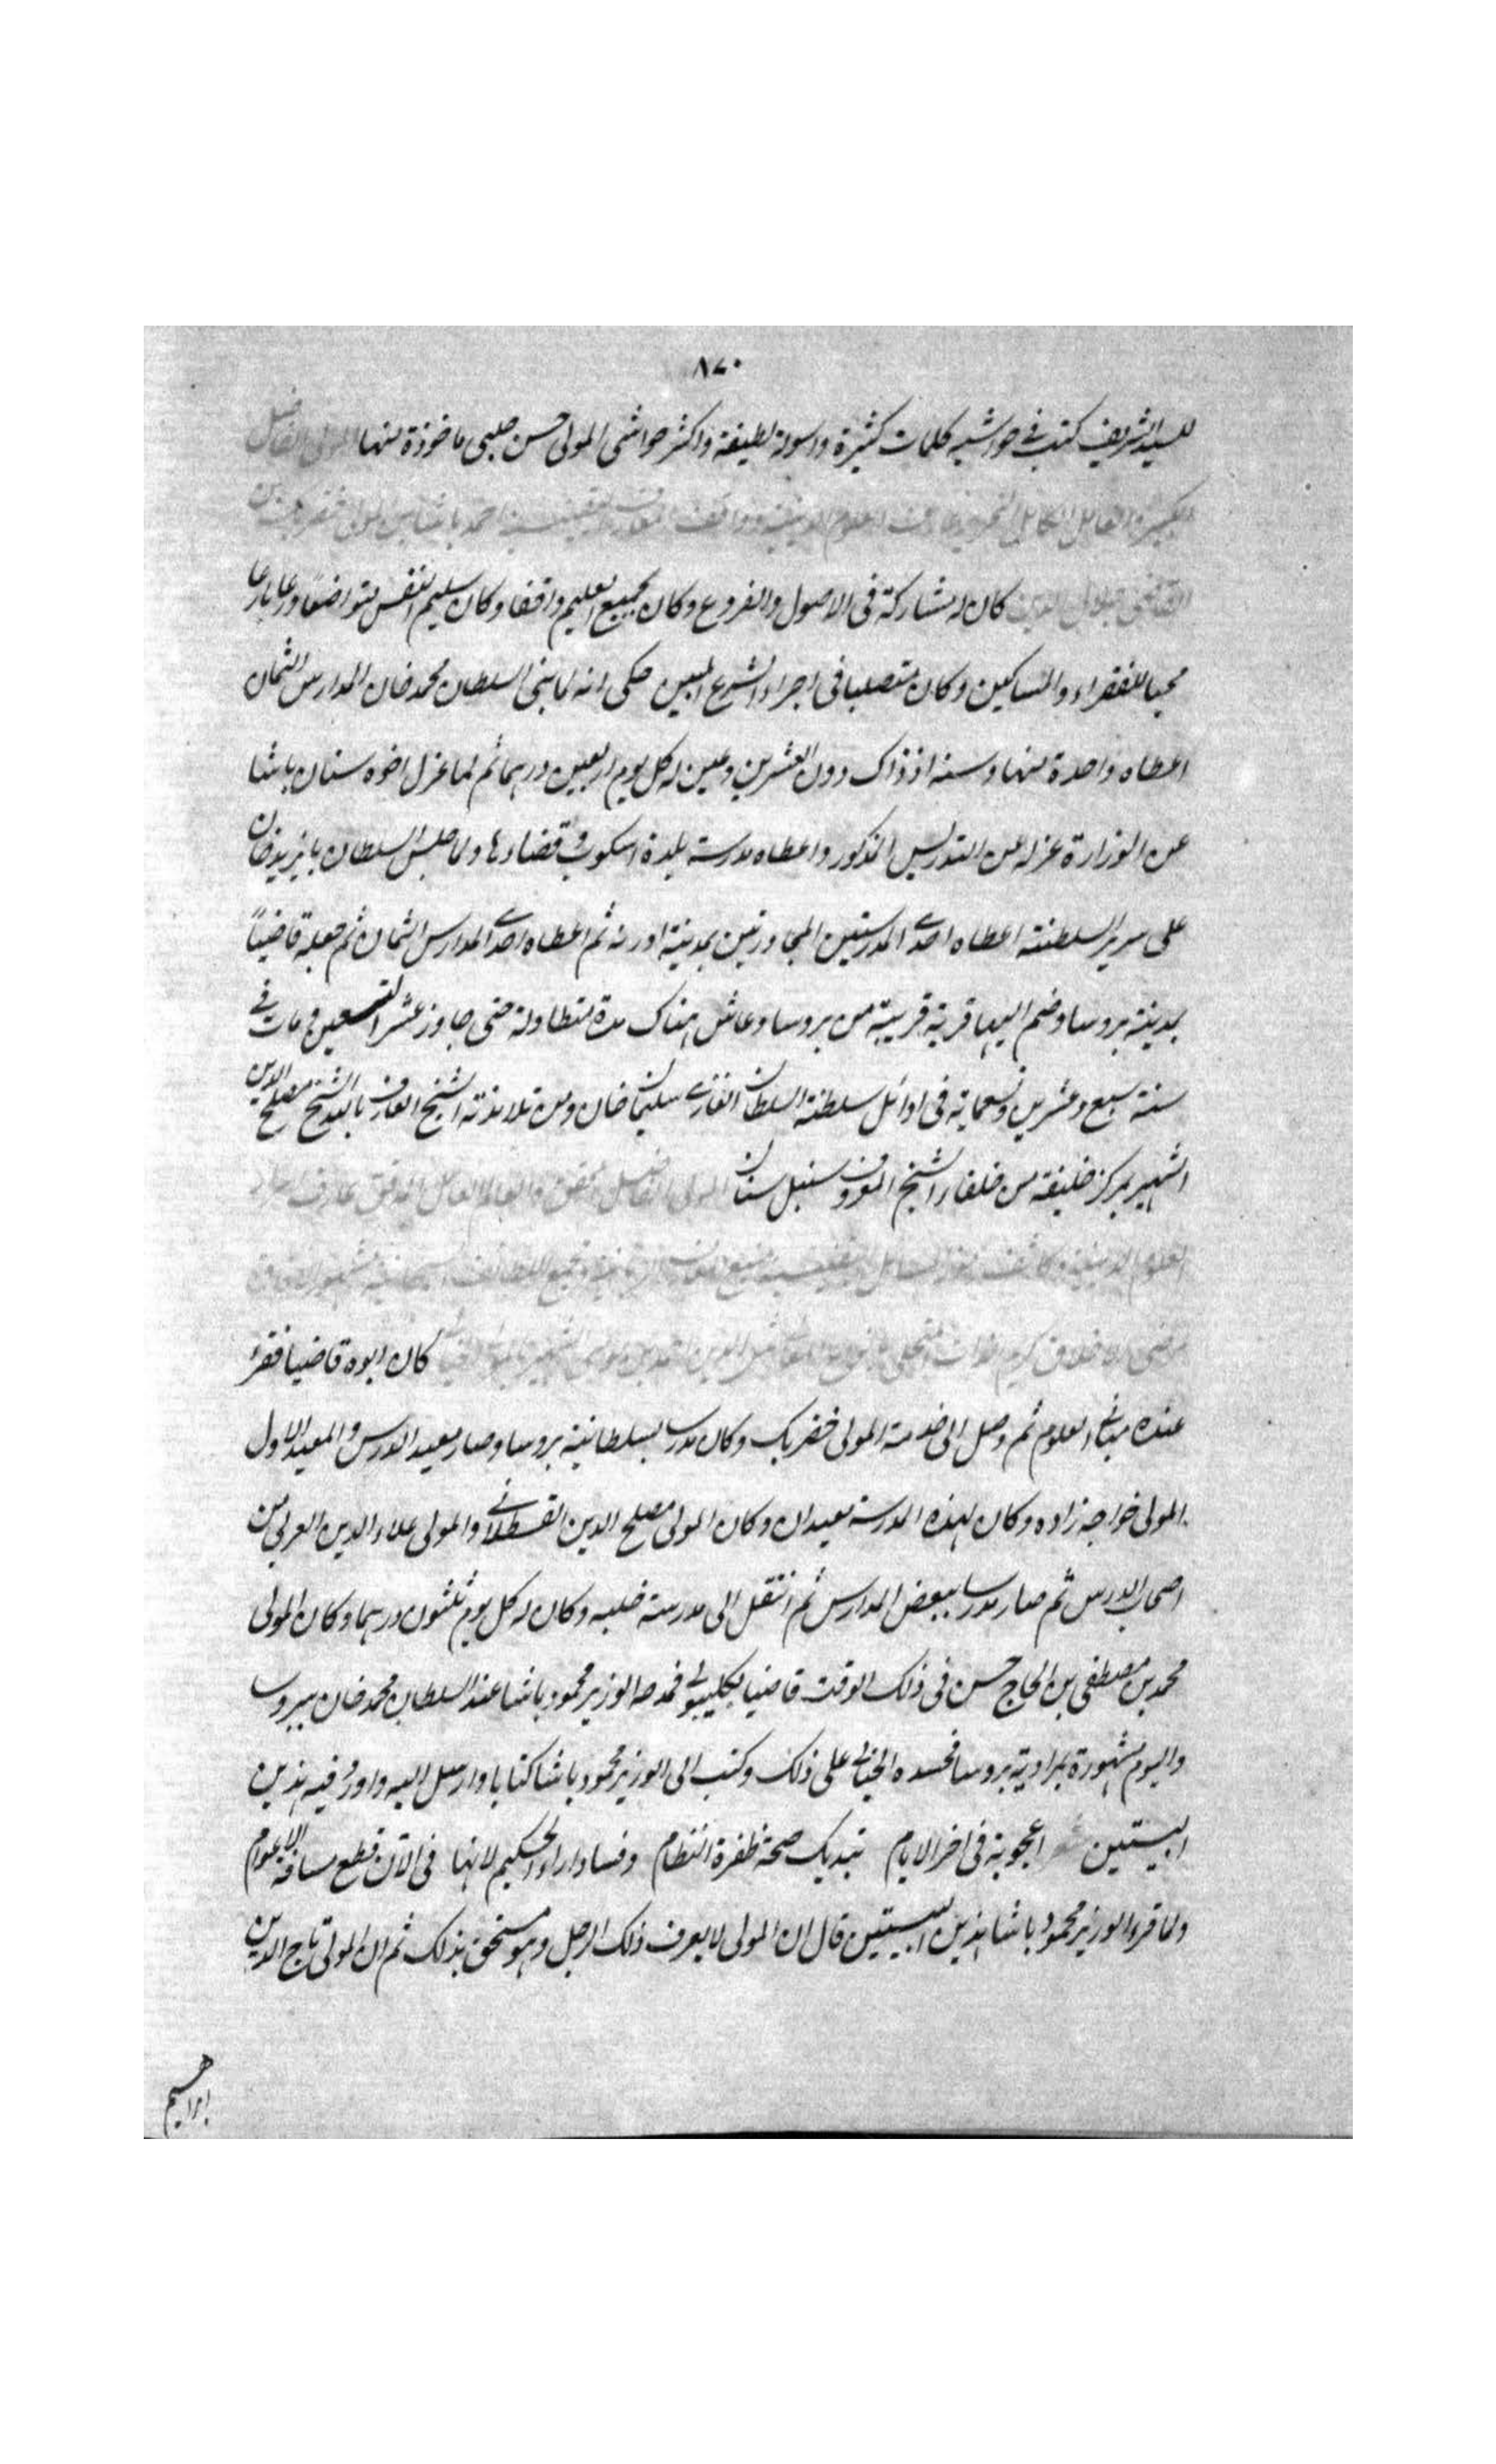 ٨٧٠
للسيد الشريف كتب في حواشيه كلمات كثيرة واسولة لطيفة واكثر حواشي المولى حسن چلبى ماخوذة منها المولى الفاضل
العامل الكامل العلوم الدينية احمد باشا بن المولى خضر بك بن
القاضى جلال الدين كان له مشاركة فى الاصول والفروع وكان بجميع العليم واقفا وكان سليم النفس متواضعا ورعا بارعا
محبا للفقراء والمساكين وكان متصلبا فى اجراء الشرع المبين حكى انه لما بنى السلطان محمد خان المدارس الثمان
اعطاه واحدة منها وسنه اذ ذاك دون العشرين وعين له كل يوم اربعين درهما ثم لما عزل اخوه سنان باشا
عن الوزارة عزله عن التدريس المذكور واعطاه مدرسة بلدة اسكوب و قضاءها ولما جلس السلطان بايزيد خان
على سرير السلطنة اعطاه احدى المدرستين المجاورتين بمدينة ادرنه ثم اعطاه احدى المدارس الثمان ثم جعله قاضيا
بمدينة بروسا وضم اليها قرية قريبة من بروسا وعاش هناك مدة متطاولة حتى جاوز عشر التسعين و مات في
سنة سبع وعشرين وتسعماية فى اوائل سلطنة السلطان الغازى سليمان خان ومن تلامذته الشيخ العارف بالله الشيخ مصلح الدين
الشهير بمركز خليفة من خلفاء الشيخ المعروف بسنبل سنان المولى الفاضل المحقق والعالم العامل المدقق عارف
العلوم الدينية وكاشف
كان ابوه قاضيا فقرأ
عنده مبانى العلوم ثم وصل الى خدمة المولى خضر بك وكان مدرسا بسلطانية بروسا وصار معيد الدرس والمعيد الاول
المولى خواجه زاده وكان لهذه المدرسة معيدان وكان المولى مصلح الدين القسطلانى والمولى علاء الدين العربى من
اصحاب الدرس ثم صار مدرسا ببعض المدارس ثم انتقل الى مدرسة فلبه وكان له كل يوم ثلثون درهما وكان المولى
محمد بن مصطفى بن الحاج حسن فى ذلك الوقت قاضيا بكليبولى فمدحه الوزير محمود باشا عند السلطان محمد خان ببروسا
واليوم مشهورة بمرادية بروسا فحسده الخيالى على ذلك وكتب الى الوزير محمود باشا كتابا وارسل اليه واورد فيه هذين
البيتين اعجوبة فى اخر الايام تبديك صحة ظفرة النظام وفساد اراء الحكيم لانها فى الآن قطع مسافة الاعوام
ولما قرء الوزير محمود باشا هذين البيتين قال ان المولى لا يعرف ذلك الرجل وهو مستحق بذلك ثم ان المولى تاج الدين
ابراهيم